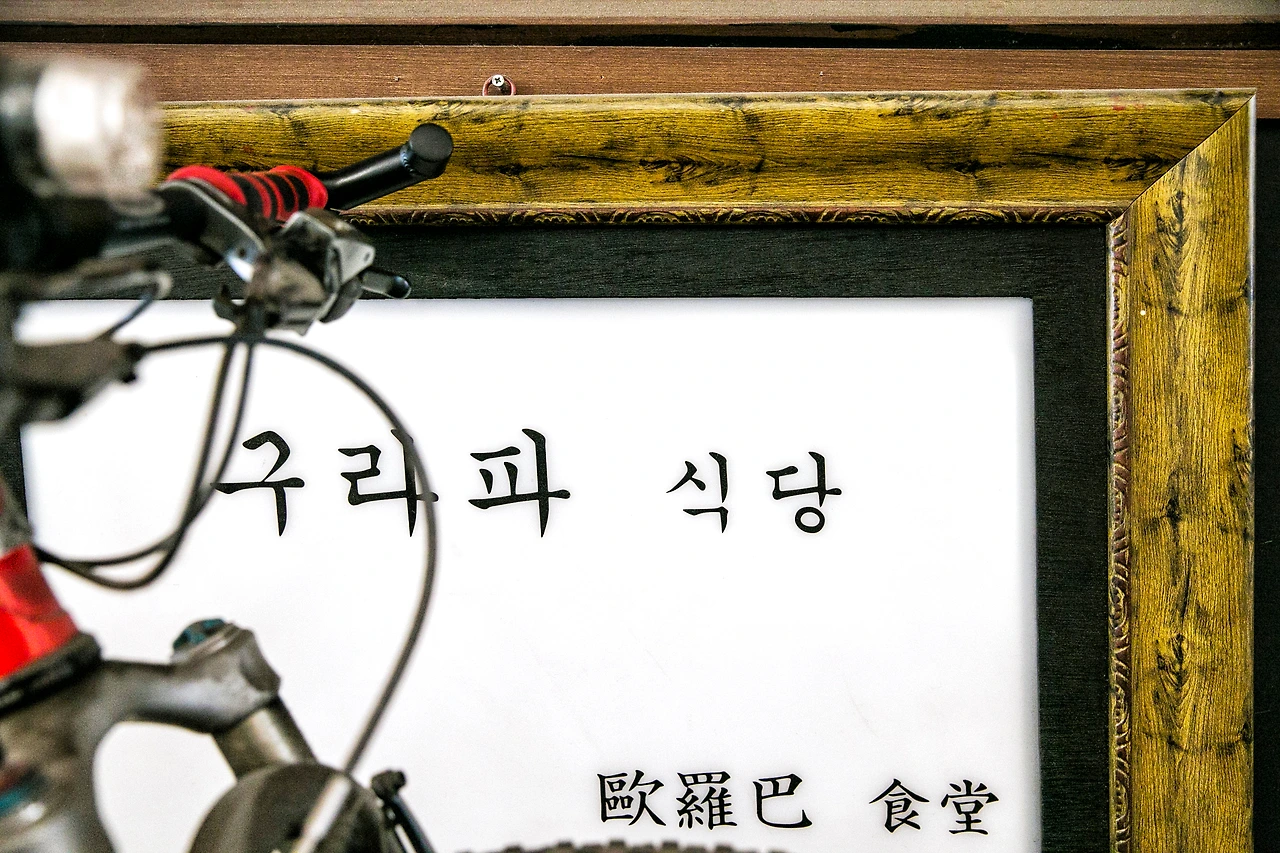 구라파 식당
歐羅巴 食堂